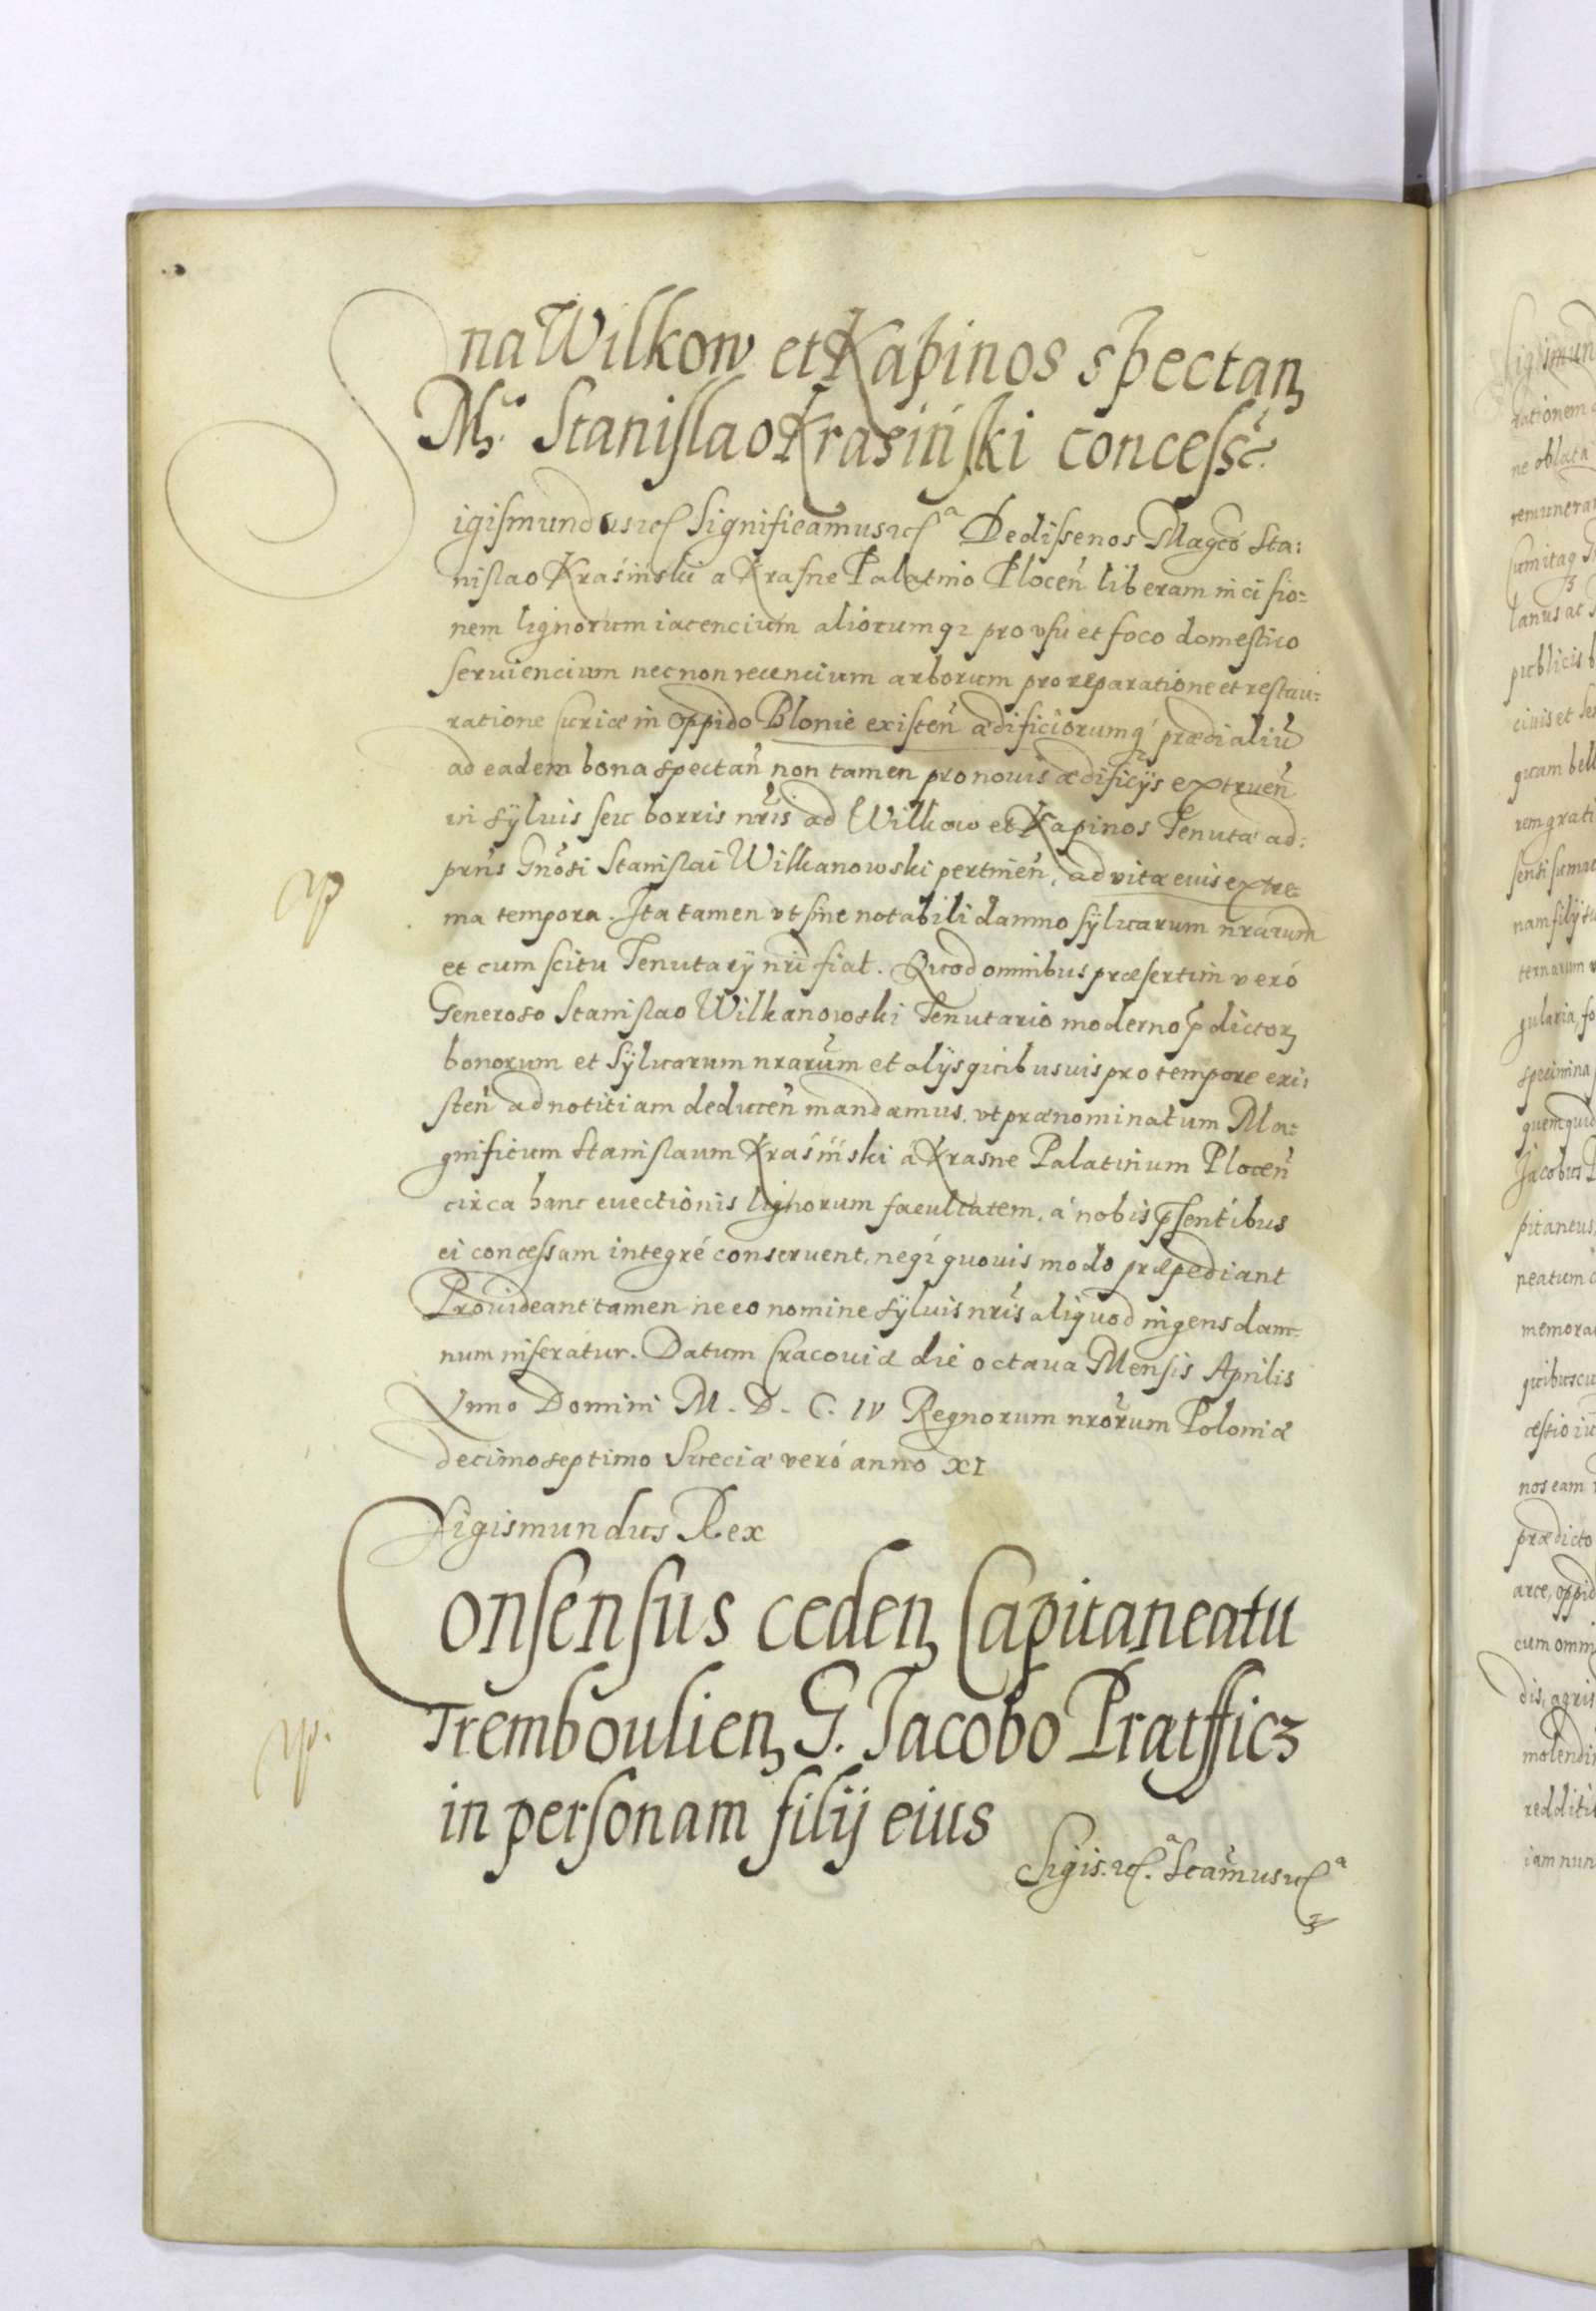 na Wilkow et Kapinos spectan
Mco Stanislao Krasinski concess
Sigismundus etc Significamus etc a Dedisse nos Magco Sta:
nislao Krasinski a Krasne Palatino Plocen liberam incisio=
nem lignorum iacencium aliorumq pro usu et foco domestico
seruiencium nec non recencium arborum pro reparatione et restau=
ratione Curiæ in Oppido Blonie existen ædificiorumq prædialiu
ad eadem bona spectan non tamen pro nouis ædificijs extruen
in syluis seu borris nris ad Wilkow et Kapinos Tenutæ ad:
prns Gnosi Stanislai Wilkanowski pertinen, ad vitæ euis extre=
ma tempora. Ita tamen vt sine notabili damno syluarum nrarum
et cum scitu Tenutarij nri fiat. Quod omnibus præsertim veró
Generoso Stanislao Wilkanowski Tenutario moderno pdictor
bonorum et syluarum nrarum et alijs quibusuis pro tempore exi:
sten ad notitiam deducen mandamus. vt prænominatum Ma=
gnificum Stanislaum Krasinski á Krasne Palatinum Plocen
circa hanc euectionis lignorum facultatem, á nobis psentibus
ei concessam integré conseruent, neq quouis modo præpediant
Prouideant tamen ne eo nomine syluis nris aliquod ingens dam=
num inferátur. Datum Cracouiæ die octaua Mensis Aprilis
Anno Domini M. D. C. IV Regnorum nrorum Poloniæ
decimo septimo Sueciæ veró anno XI
Sigismundus Rex
Consensus ceden Capitaneatu
Tremboulien G. Jacobo Pratfficz
in personam filij eius
Sigis. etc. a Scamus etc a